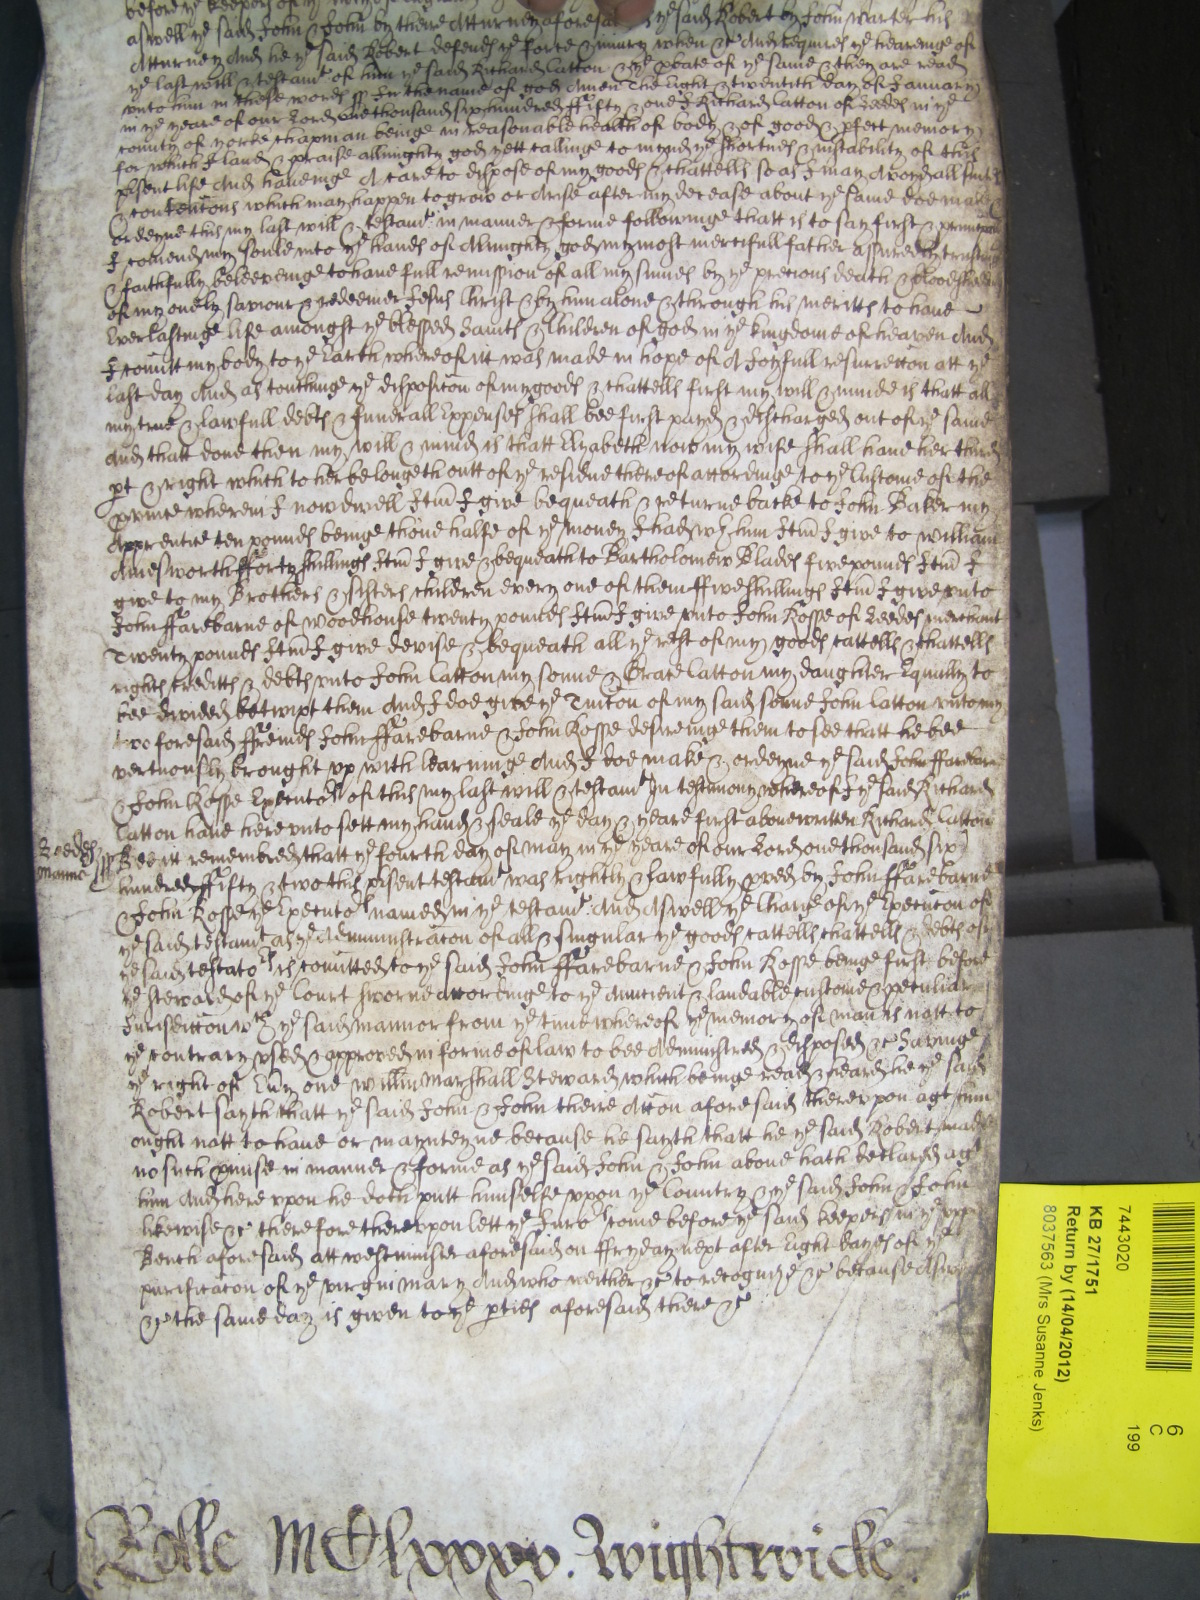 before ye keepers of ye
aswell ye said John & John by there Atturney aforesaid ye said Robert by John Warter his
Atturney And he ye said Robert defends ye force & iniury when &c And requires ye heareinge of
ye last will & testamt of him ye said Richard Catton & ye pbate of ye same & they are read
unto him in these words ss In the name of god Amen The Eight & twentith day of January
in ye yeare of our Lord one thousand six hundred ffifty & one I Richard Catton of Leedes in ye
county of yorke Chapman beinge in reasonable health of body & of good & pfect memory
for which I laud & praise allmighty god yett callinge to mynd ye shortnes & instability of this
psent life And haueinge A care to dispose of my goods & chattells so as I may Avoyd all suites
& contentons which may happen to grow or Arise after my decease about ye same doe make &
ordeyne this my last will & testamt in manner & forme followinge thatt is to say first & principally
I comend my soule into ye hands of Almighty god my most mercifull father assuredly trusting
& faithfully beleeveinge to haue full remission of all my sinnes by ye precious death & bloodshedding
of my onely saviour & redeemer Jesus Christ & by him alone & through his meritts to haue
Everlastinge life amongst ye blessed Saints & Children of god in ye kingdome of heaven And
I comitt my body to ye Earth whereof itt was made in hope of A Joyfull resurrecton att ye
last day And as touchinge ye dispositon of my goods & chattells first my will & minde is thatt all
my true & lawfull debts & funerall Expenses shall bee first payd & discharged out of ye same
And thatt done then my will & mind is thatt Elyzabeth now my wife shall haue her third
pt & right which to her belongeth outt of ye residue thereof accordinge to ye Custome of the
pvince wherein I now dwell Itm I give bequeath & returne backe to John Baker my
Apprentice ten pounds beinge thone halfe of ye money I had wth him Itm I give to William
Amesworth ffforty shillings Itm I give & bequeath to Bartholomew Blades five pounds Itm I
give to my Brothers & sisters children every one of them ffive shillings Itm I give unto
John ffarebarne of Woodhouse twenty pounds Itm I give unto John Rosse of Leedes merchant
Twenty pounds Itm I give devise & bequeath all ye rest of my goods cattells & chattells
rights creditts & debts unto John Catton my sonne & Grace Catton my daughter Equally to
bee devided betwixt them And I doe give ye Tuition of my said sonne John Catton unto my
two foresaid ffreinds John ffarebarne & John Rosse desireinge them to see thatt he bee
vertuously brought up with learninge And I doe make & ordeyne ye said John ffarebarne
& John Rosse Executors of this my last will & testamt In testimony whereof I ye said Richard
Catton haue here unto sett my hand & seale ye day & yeare first aboue written Richard Catton
Leedes
Mannor ss Bee itt remembred thatt ye fourth day of may in ye yeare of our Lord one thousand six
hundred ffifty & two this psent testamt was rightly & lawfully pved by John ffarebarne
& John Rosse ye Executors named in ye testamt And Aswell ye Charge of ye Executon of
ye said testamt as ye Administracon of all & singular ye goods cattells chattells & debts of
ye said testator is comitted to ye said John ffarebarne & John Rosse beinge first before
ye steward of ye Court sworne accordinge to ye Auncient & laudable custome & peculiar
Jurisdiccon wth ye said mannor from ye time whereof ye memory of man is nott to
ye contrary used & approved in forme of law to bee Administred & disposed &c Saveinge
ye right of Evy one willm Marshall Steward which beinge read & heard he ye said
Robert sayth thatt ye said John & John theire Accon aforesaid thereupon agt him
ought nott to haue or maynteyne because he sayth thatt he ye said Robert made
no such pmise in manner & forme as ye said John & John aboue hath declared agt
him And hereupon he doth putt himselfe uppon ye Country & ye said John & John
likewise &c therefore thereuppon lett ye Jurors come before ye said keepers in ye upp
Bench aforesaid att westminster aforesaid on ffryday next after Eight dayes of ye
purificacon of ye virgin mary And who neither &c to recognize &c because Aswell
&c the same day is given to ye pties aforesaid there &c
Rolle MDlxxxv. Wightwicke.
7443020
KB 27/1751
Return by (14/04/2012)
8037563 (Mrs Susanne Jenks)
6
C
199